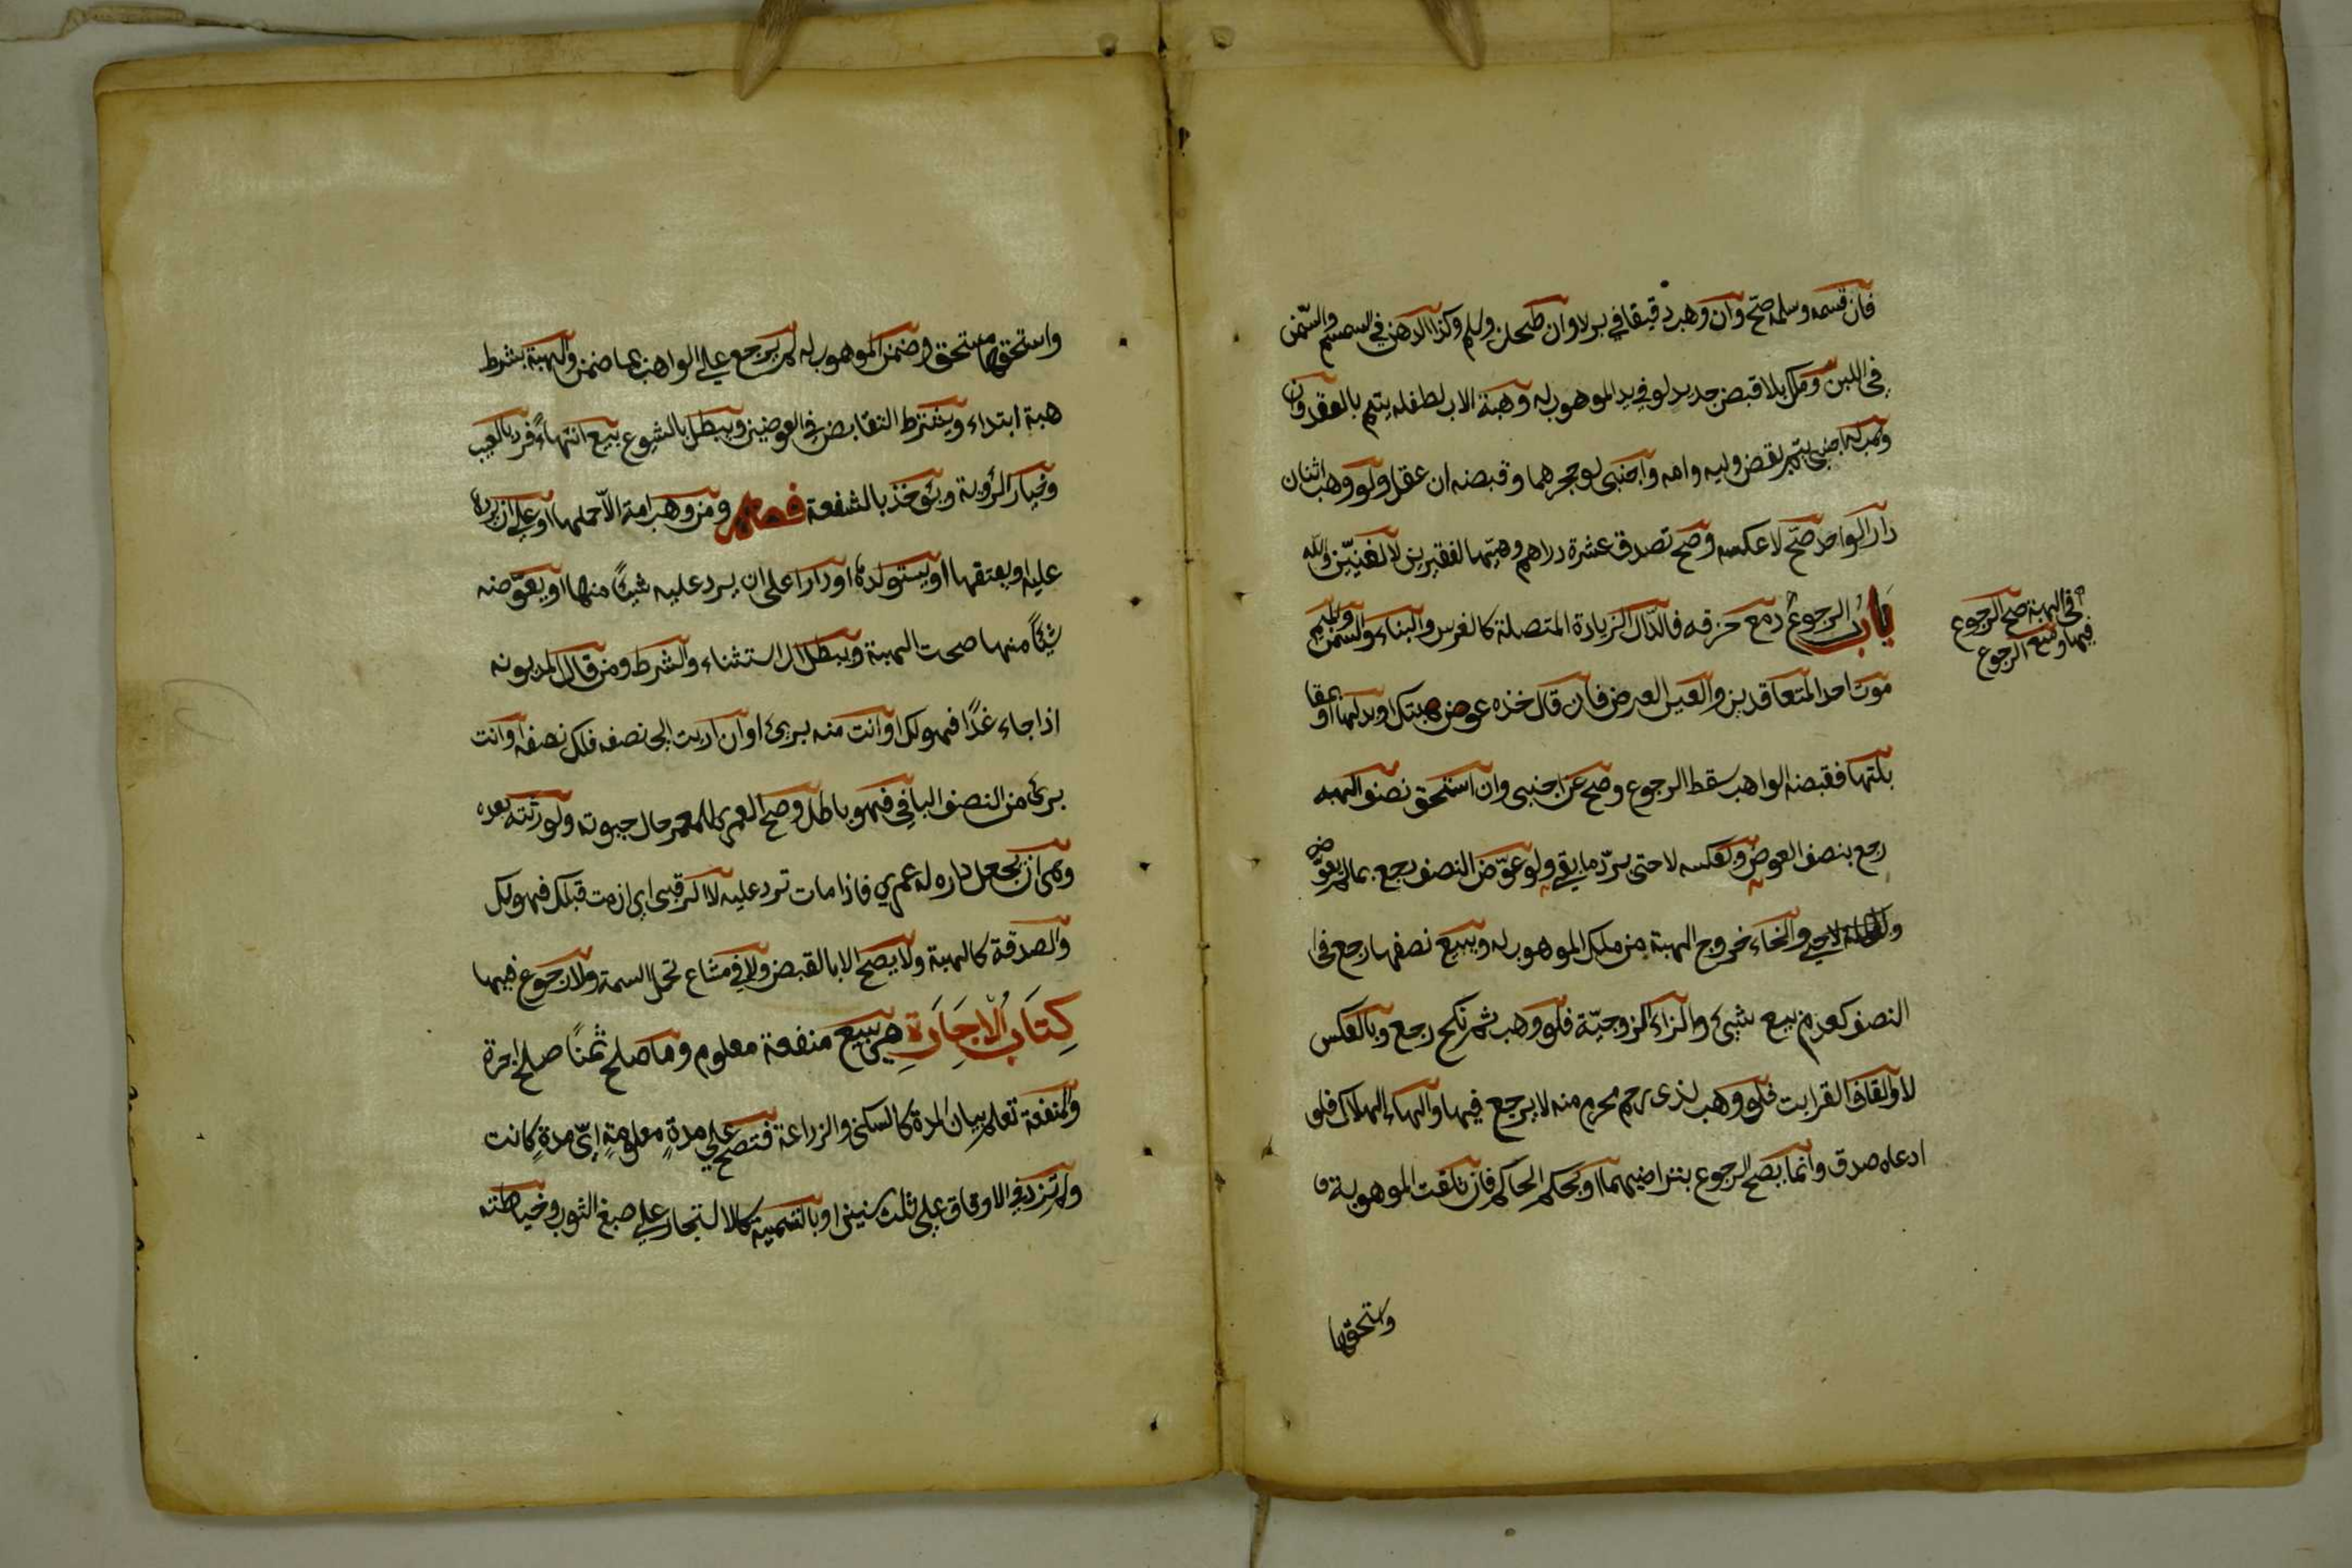 فان قسمه وسلمه صح وان وهب دقيقا في بر لا وان طحن وسلم وكذا الدهن في السمسم والسمن
في اللبن وملك بلا قبض جديد لو في يد الموهوب له وهبة الاب لطفله يتم بالعقد وان
وهب له اجنبي يتم بقبض وليه وامه واجنبي لو بحجرهما وقبضه ان عقل ولو وهب اثنان
دارا لواحد صح لا عكسه وصح تصدق عشرة دراهم وهبتها لفقيرين لا لغنيين والله
باب الرجوع
في الهبة صح الرجوع
فيها ومنع الرجوع
دمع خزقه فالدال الزيادة المتصلة كالغرس والبناء والسمن والميم
موت احد المتعاقدين والعين العوض فان قال خذه عوض هبتك او بدلها او بمقا
بلتها فقبضه الواهب سقط الرجوع وصح عن اجنبي وان استحق نصف الهبه
رجع بنصف العوض وبعكسه لا حتى يرد ما بقي ولو عوض النصف رجع بما لم يعوض
والخاء خروج الهبة من ملك الموهوب له وببيع نصفها رجع في
النصف كعدم بيع شيئ والزاء الزوجية فلو وهب ثم نكح رجع وبالعكس
لا والقاف القرابت فلو وهب لذى رحم محرم منه لا يرجع فيها والهاء الهلاك فلو
ادعاه صدق وانما يصح الرجوع بتراضيهما او بحكم الحاكم فان تلفت الموهوبة
واستحقها
واستحقها مستحق وضمن الموهوب له لم يرجع علي الواهب بما ضمن والهبة بشرط
هبة ابتداء ويشترط التقابض في العوضين ويبطل بالشيوع بيع انتهاءً فرد بالعيب
وخيار الرؤية ويؤخذ بالشفعة فصل ومن وهب امة الا حملها او علي ان يردها
عليه او يعتقها او يستولدها او دارا على ان يرد عليه شيئاً منها او يعوضه
شيئاً منها صحت الهبة ويبطل الاستثناء والشرط ومن قال لمديونه
اذا جاء غدًا فهو لك او انت منه بريئ او ان اديت الى نصفه فلك نصفه او انت
بريئ من النصف الباقي فهو باطل وصح العمرى للمعمر حال حيوته ولورثته بعده
وهى ان يجعل داره له عمري فاذا مات ترد عليه لا الرقبى اى ان مت قبلك فهو لك
والصدقة كالهبة ولا يصح الا بالقبض ولا في مشاع تحمل القسمة ولا رجوع فيها
كِتَابُ الْاِجَارَةِ هى بيع منفعة معلوم وما صلح ثمنًا صلح اجرة
والمنفعة تعلم ببيان المدة كالسكنى والزراعة فتصح على مدةٍ معلومةٍ اىّ مدةٍ كانت
ولم تزد في الاوقاف على ثلث سنين او بالتسمية كالاستيجار علي صبغ الثوب وخياطته